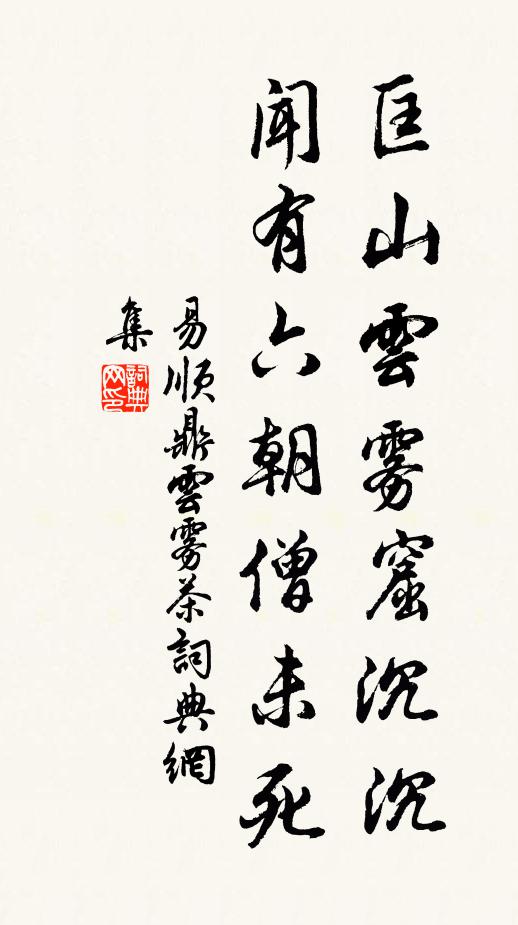 匡山雲雾窟沉沉
聞有六朝僧未死
易順鼎雲雾茶詞典網
集
詞典
网印